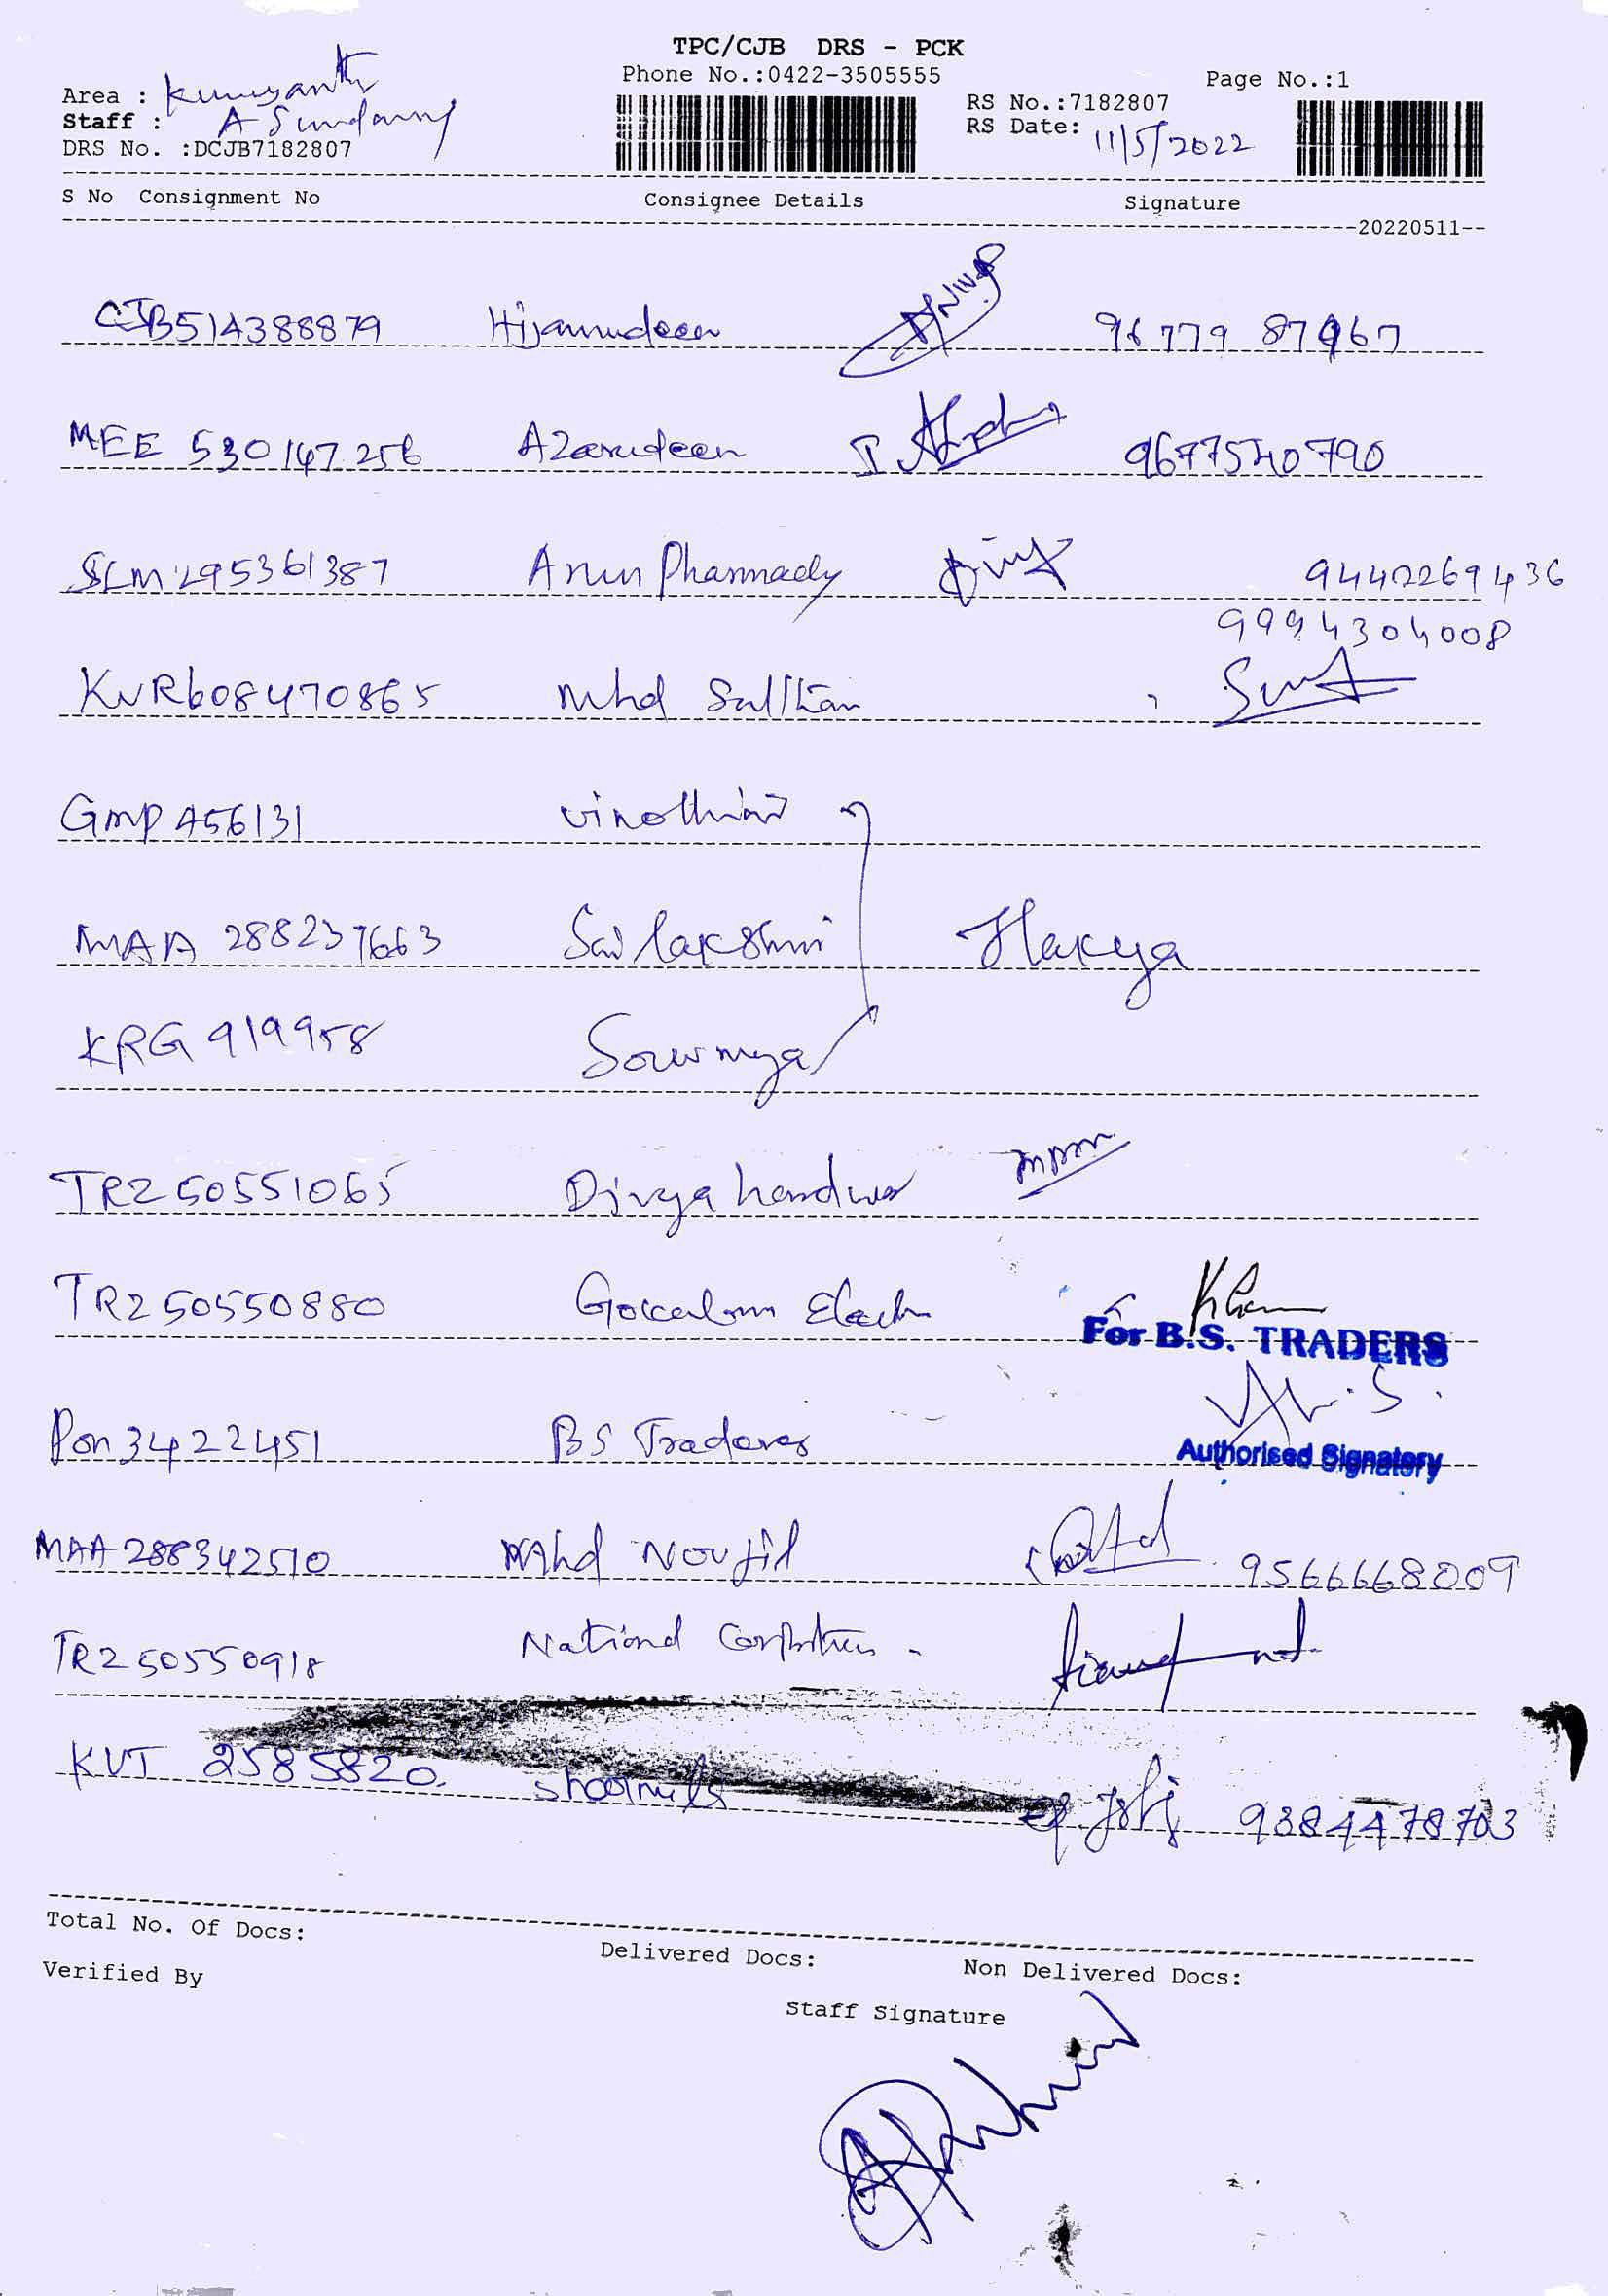 TPC/CJB DRS - PCK
Phone No.:0422-3505555
Page No.:1
Area :
Staff : A
DRS No. :DCJB7182807
RS No.:7182807
RS Date: 11/5/2022
S No Consignment No Consignee Details Signature
20220511
CJB514388879 Hijamudeen 96779 87967
MEE 530147256 Azarudeen 9677540790
SLM295361387 Arun Pharmacy 9442269436
9994304008
KVR608470865 Mhd Sulltan
GMP456131 vinothini
MAA 288237663 Sai lakshmi
KRG 919958 Sowmya
TRZ50551065 Divya
TRZ50550880
For B.S. TRADERS
Pon34224451 BS Traders
Authorised Signatory
MAA288342510 Mhd Noufil 9566668009
TRZ50550918 National
KVT 2585820. 9384478703
Total No. Of Docs: Delivered Docs: Non Delivered Docs:
Verified By
Staff Signature